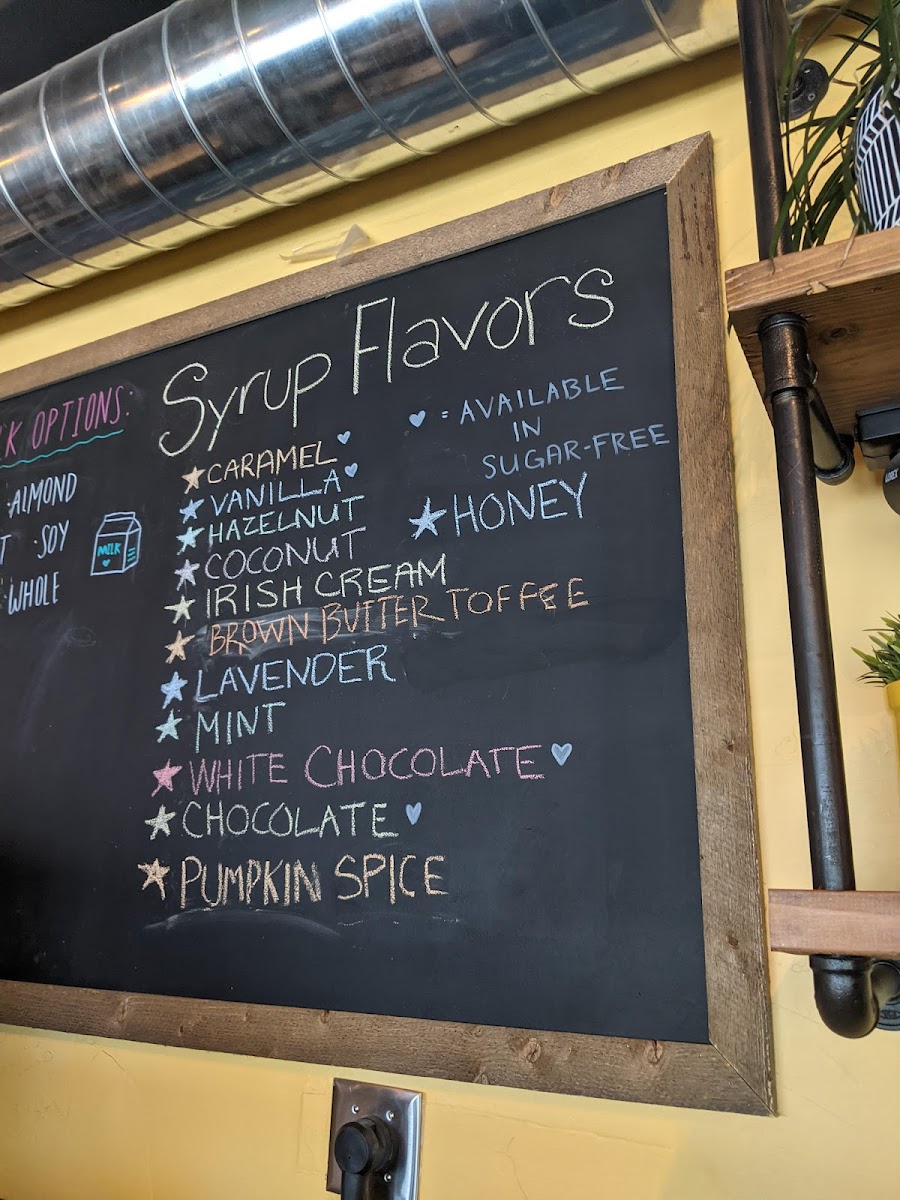 OPTIONS:
·ALMOND
·SOY
·WHOLE
MILK
Syrup Flavors
♥ = AVAILABLE
IN
SUGAR-FREE
★CARAMEL♥
★VANILLA♥
★HAZELNUT
★COCONUT
★IRISH CREAM
★BROWN BUTTER TOFFEE
★LAVENDER
★MINT
★WHITE CHOCOLATE♥
★CHOCOLATE♥
★PUMPKIN SPICE
★HONEY